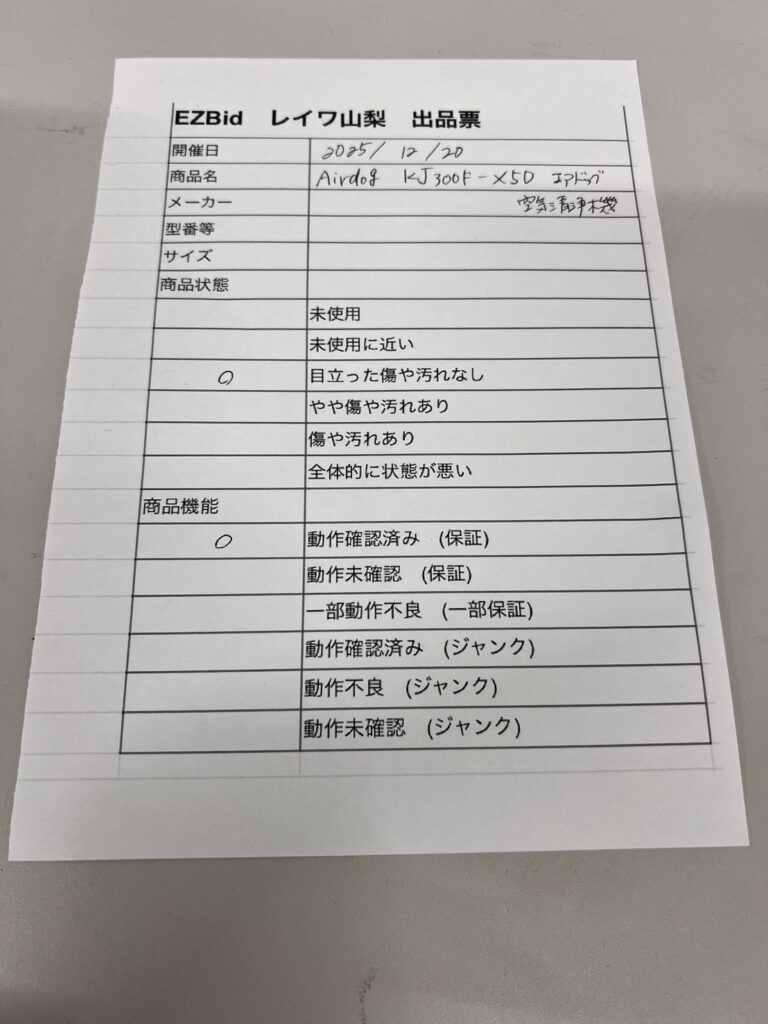 EZBid レイワ山梨 出品票
開催日 2025/ 12 /20
商品名 Airdog KJ300F-X5D エアドッグ
メーカー 空気清浄機
型番等
サイズ
商品状態
未使用
未使用に近い
○ 目立った傷や汚れなし
やや傷や汚れあり
傷や汚れあり
全体的に状態が悪い
商品機能
○ 動作確認済み (保証)
動作未確認 (保証)
一部動作不良 (一部保証)
動作確認済み (ジャンク)
動作不良 (ジャンク)
動作未確認 (ジャンク)